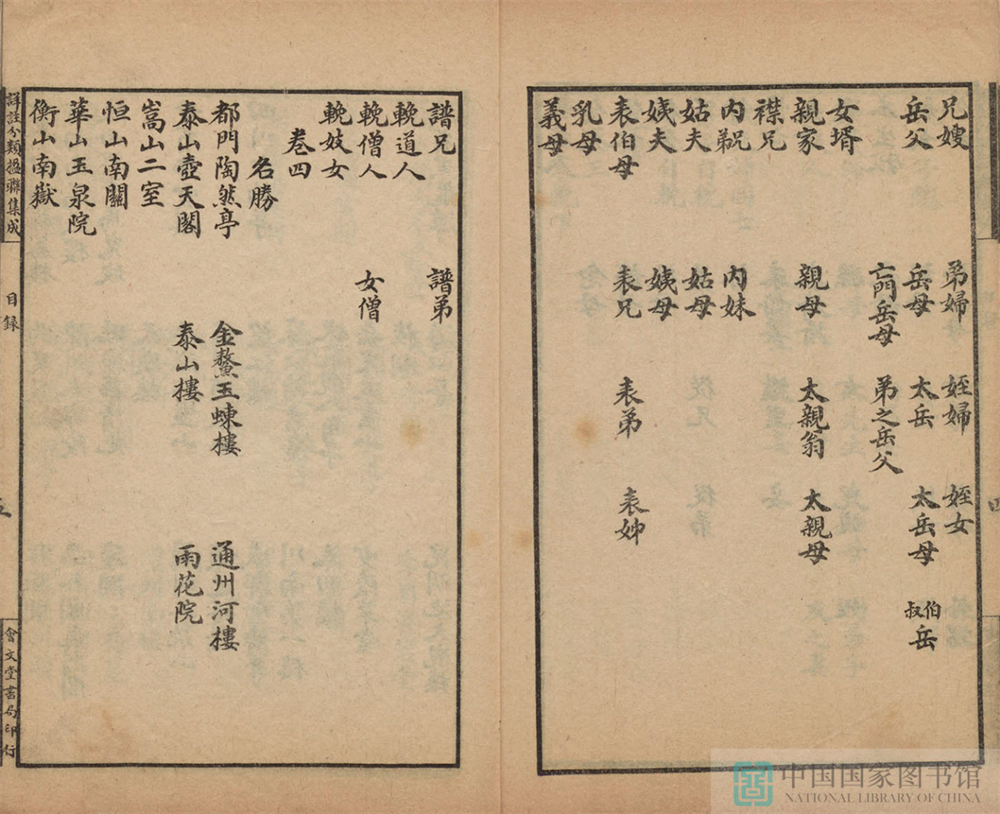 兄嫂 弟婦 姪婦 姪女
岳父 岳母 太岳 太岳母 伯叔岳
亡門岳母 弟之岳父
女壻
親家 親母 太親翁 太親母
襟兄
內䫉 內妹
姑夫 姑母
姨夫 姨母
表伯母 表兄 表弟 表姊
乳母
義母
譜兄 譜弟
輓道人
輓僧人 女僧
輓妓女
卷四
名勝
都門陶然亭 金鰲玉蝀樓 通州河樓
泰山壺天閣 泰山樓 雨花院
嵩山二室
恒山南關
華山玉泉院
衡山南嶽
詳註分類楹聯集成
目録
五
會文堂書局印行
四
中国国家图书馆
NATIONAL LIBRARY OF CHINA